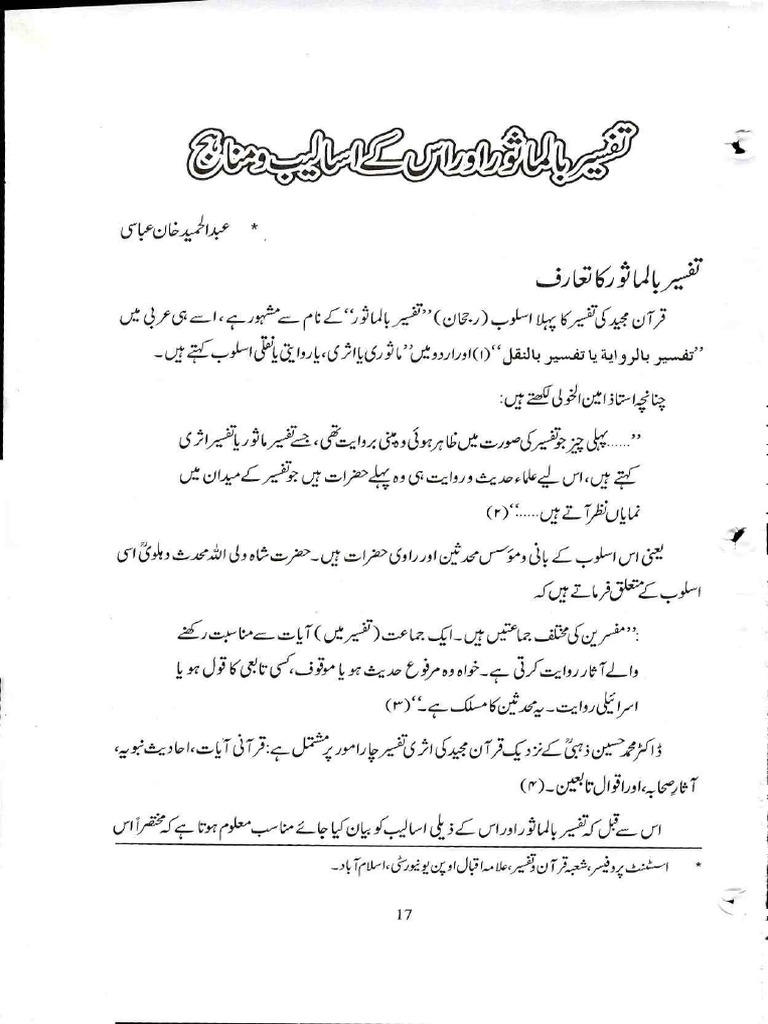 تفسیر بالماثور اور اس کے اسالیب و مناہج
* عبدالحمید خان عباسی
تفسیر بالماثور کا تعارف
قرآن مجید کی تفسیر کا پہلا اسلوب (رجحان) ”تفسیر بالماثور“ کے نام سے مشہور ہے، اسے ہی عربی میں
”تفسیر بالروایة یا تفسیر بالنقل“ (۱) اور اردو میں ”ماثوری یا اثری، یا روایتی یا نقلی اسلوب کہتے ہیں۔
چنانچہ استاذ امین الخولی لکھتے ہیں:
”......پہلی چیز جو تفسیر کی صورت میں ظاہر ہوئی وہ مبنی بروایت تھی، جسے تفسیر ماثور یا تفسیر اثری
کہتے ہیں، اس لیے علماء حدیث و روایت ہی وہ پہلے حضرات ہیں جو تفسیر کے میدان میں
نمایاں نظر آتے ہیں......“ (۲)
یعنی اس اسلوب کے بانی و مؤسس محدثین اور راوی حضرات ہیں۔ حضرت شاہ ولی اللہ محدث دہلویؒ اسی
اسلوب کے متعلق فرماتے ہیں کہ
:”مفسرین کی مختلف جماعتیں ہیں۔ ایک جماعت (تفسیر میں) آیات سے مناسبت رکھنے
والے آثار روایت کرتی ہے۔ خواہ وہ مرفوع حدیث ہو یا موقوف، کسی تابعی کا قول ہو یا
اسرائیلی روایت۔ یہ محدثین کا مسلک ہے۔“ (۳)
ڈاکٹر محمد حسین ذہبیؒ کے نزدیک قرآن مجید کی اثری تفسیر چار امور پر مشتمل ہے: قرآنی آیات، احادیث نبویہ،
آثارِ صحابہ، اور اقوال تابعین۔ (۴)
اس سے قبل کہ تفسیر بالماثور اور اس کے ذیلی اسالیب کو بیان کیا جائے مناسب معلوم ہوتا ہے کہ مختصراً اس
* اسسٹنٹ پروفیسر، شعبہ قرآن و تفسیر، علامہ اقبال اوپن یونیورسٹی، اسلام آباد۔
17